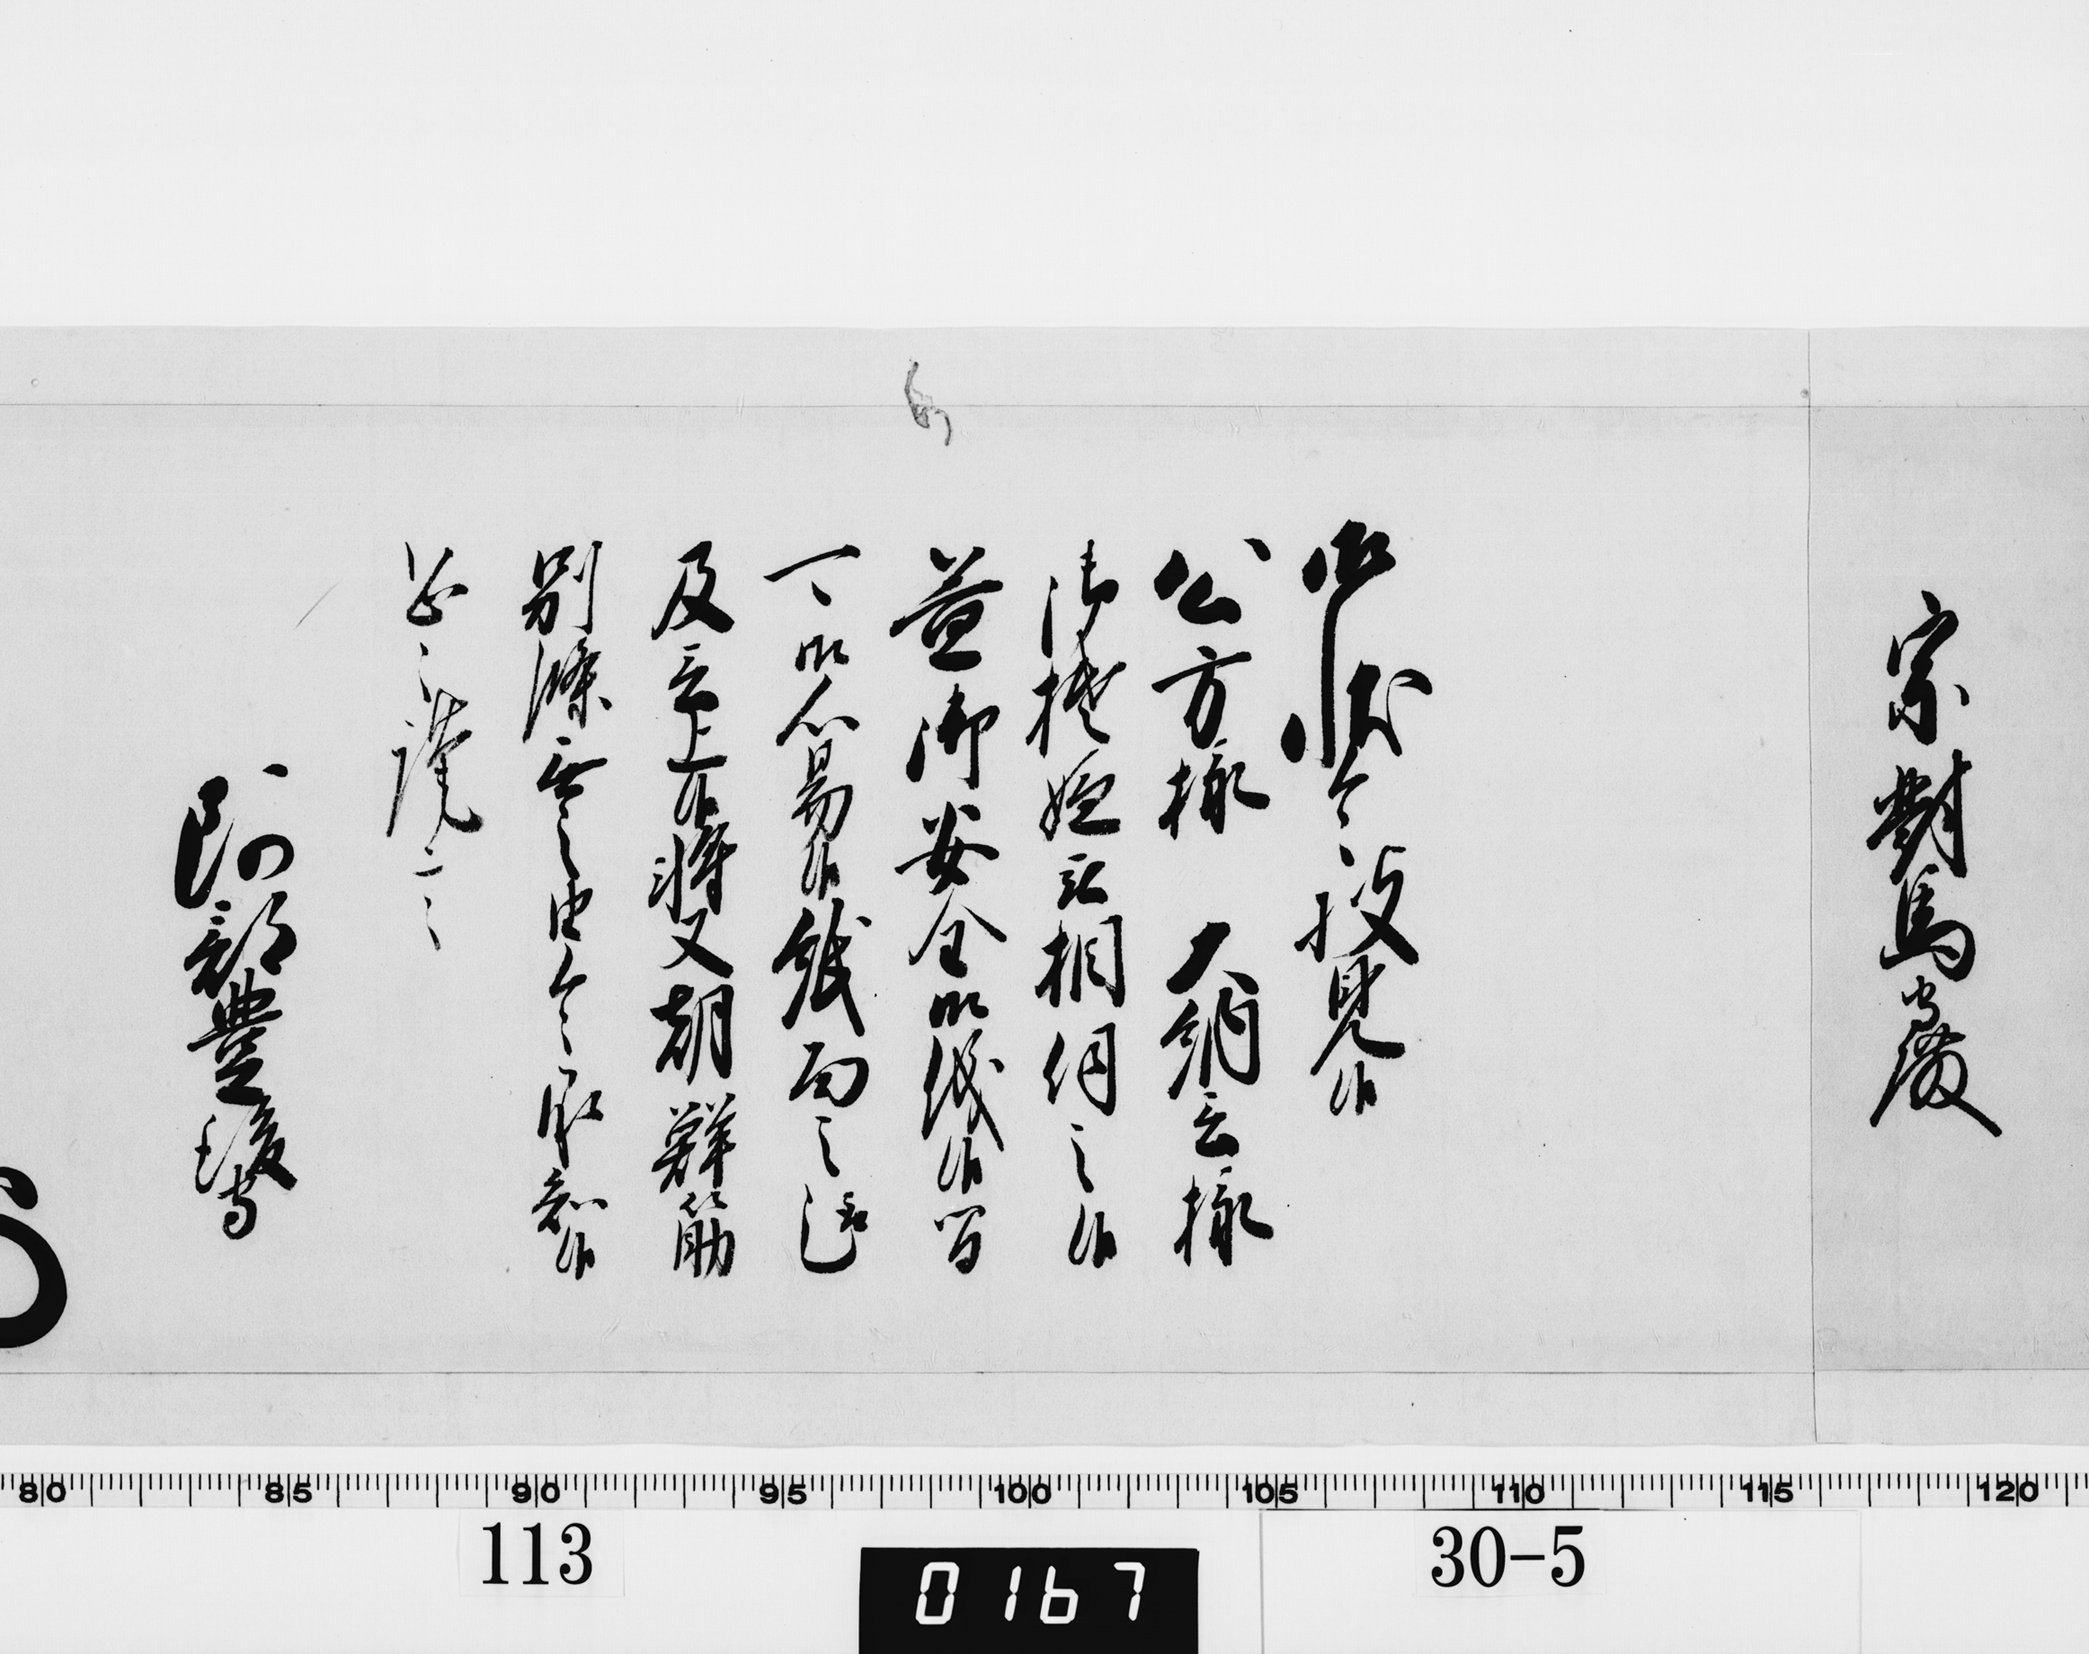 宗對馬守殿
御状令披見候
公方様　大納言様
御機嫌被相伺之候
益御安全御儀候間
可御心易候紙面之趣
及言上候将又朝鮮筋
別條無之由令承知候
恐々謹言
阿部豊後守
80 85 90 95 100 105 110 115 120
113
0167
30-5